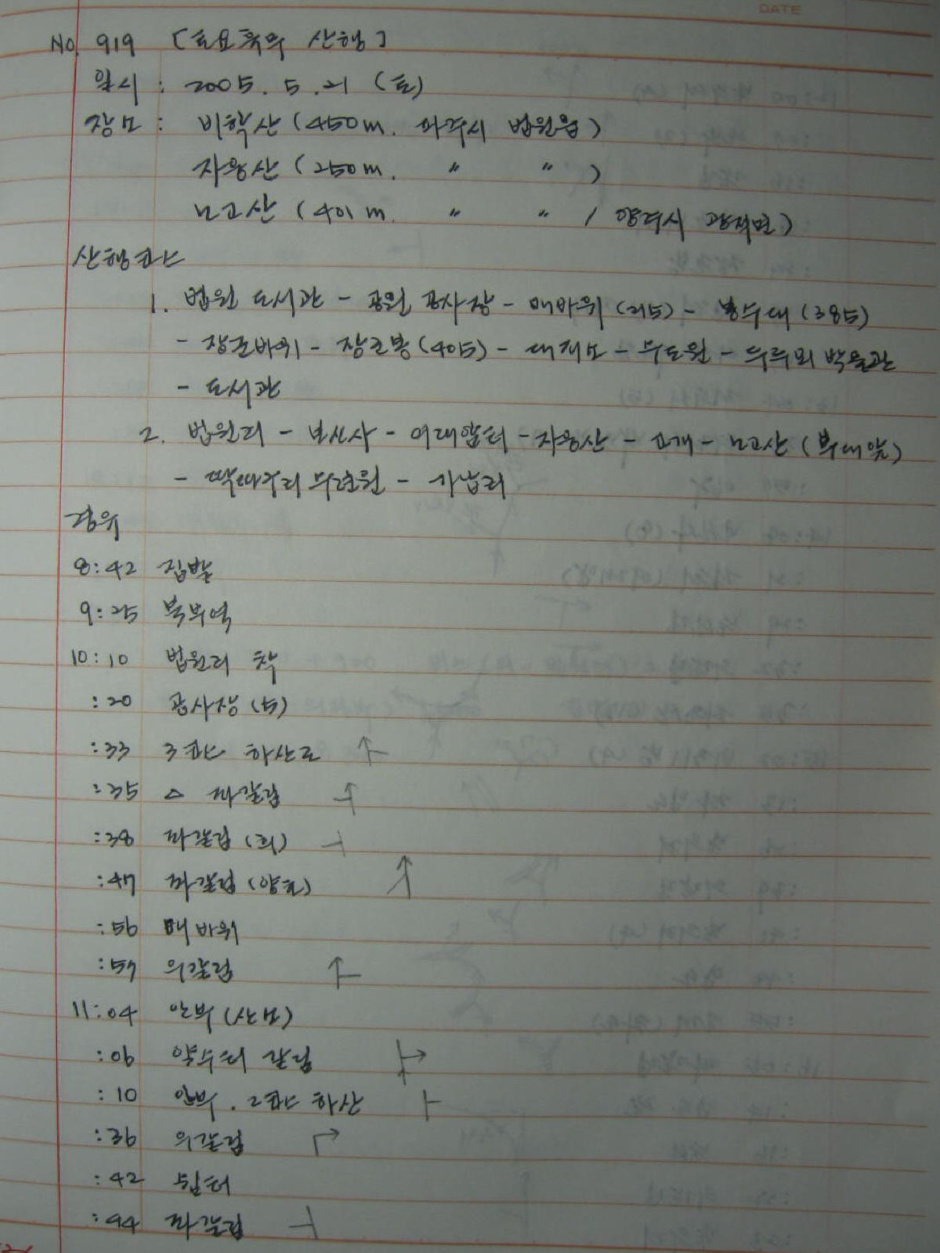 DATE
No. 919 [토요특무 산행]
일시 : 2005. 5. 21 (토)
장소 : 비학산 (450m. 파주시 법원읍)
자웅산 (250m. " ")
노고산 (401m. " " / 양주시 광적면)
산행코스
1. 법원 도서관 - 공원 공사장 - 매바위 (215) - 암수대 (385)
- 장군바위 - 장군봉 (405) - 대피소 - 무도원 - 두루뫼 박물관
- 도서관
2. 법원리 - 보신사 - 자웅산 - 고개 - 노고산 (부대앞)
- 딱따구리 수련원 - 가납리
경위
8:42 집발
9:25 북부역
10:10 법원리 착
:20 공사장 (5)
:33 3코스 하산로
:35 △ 좌갈림
:38 좌갈림 (희)
:47 좌갈림 (양호)
:56 매바위
:57 우갈림
11:04 안부 (산보)
:06 약수터 갈림
:10 안부. 2코스 하산
:36 우갈림
:42 쉼터
:44 좌갈림